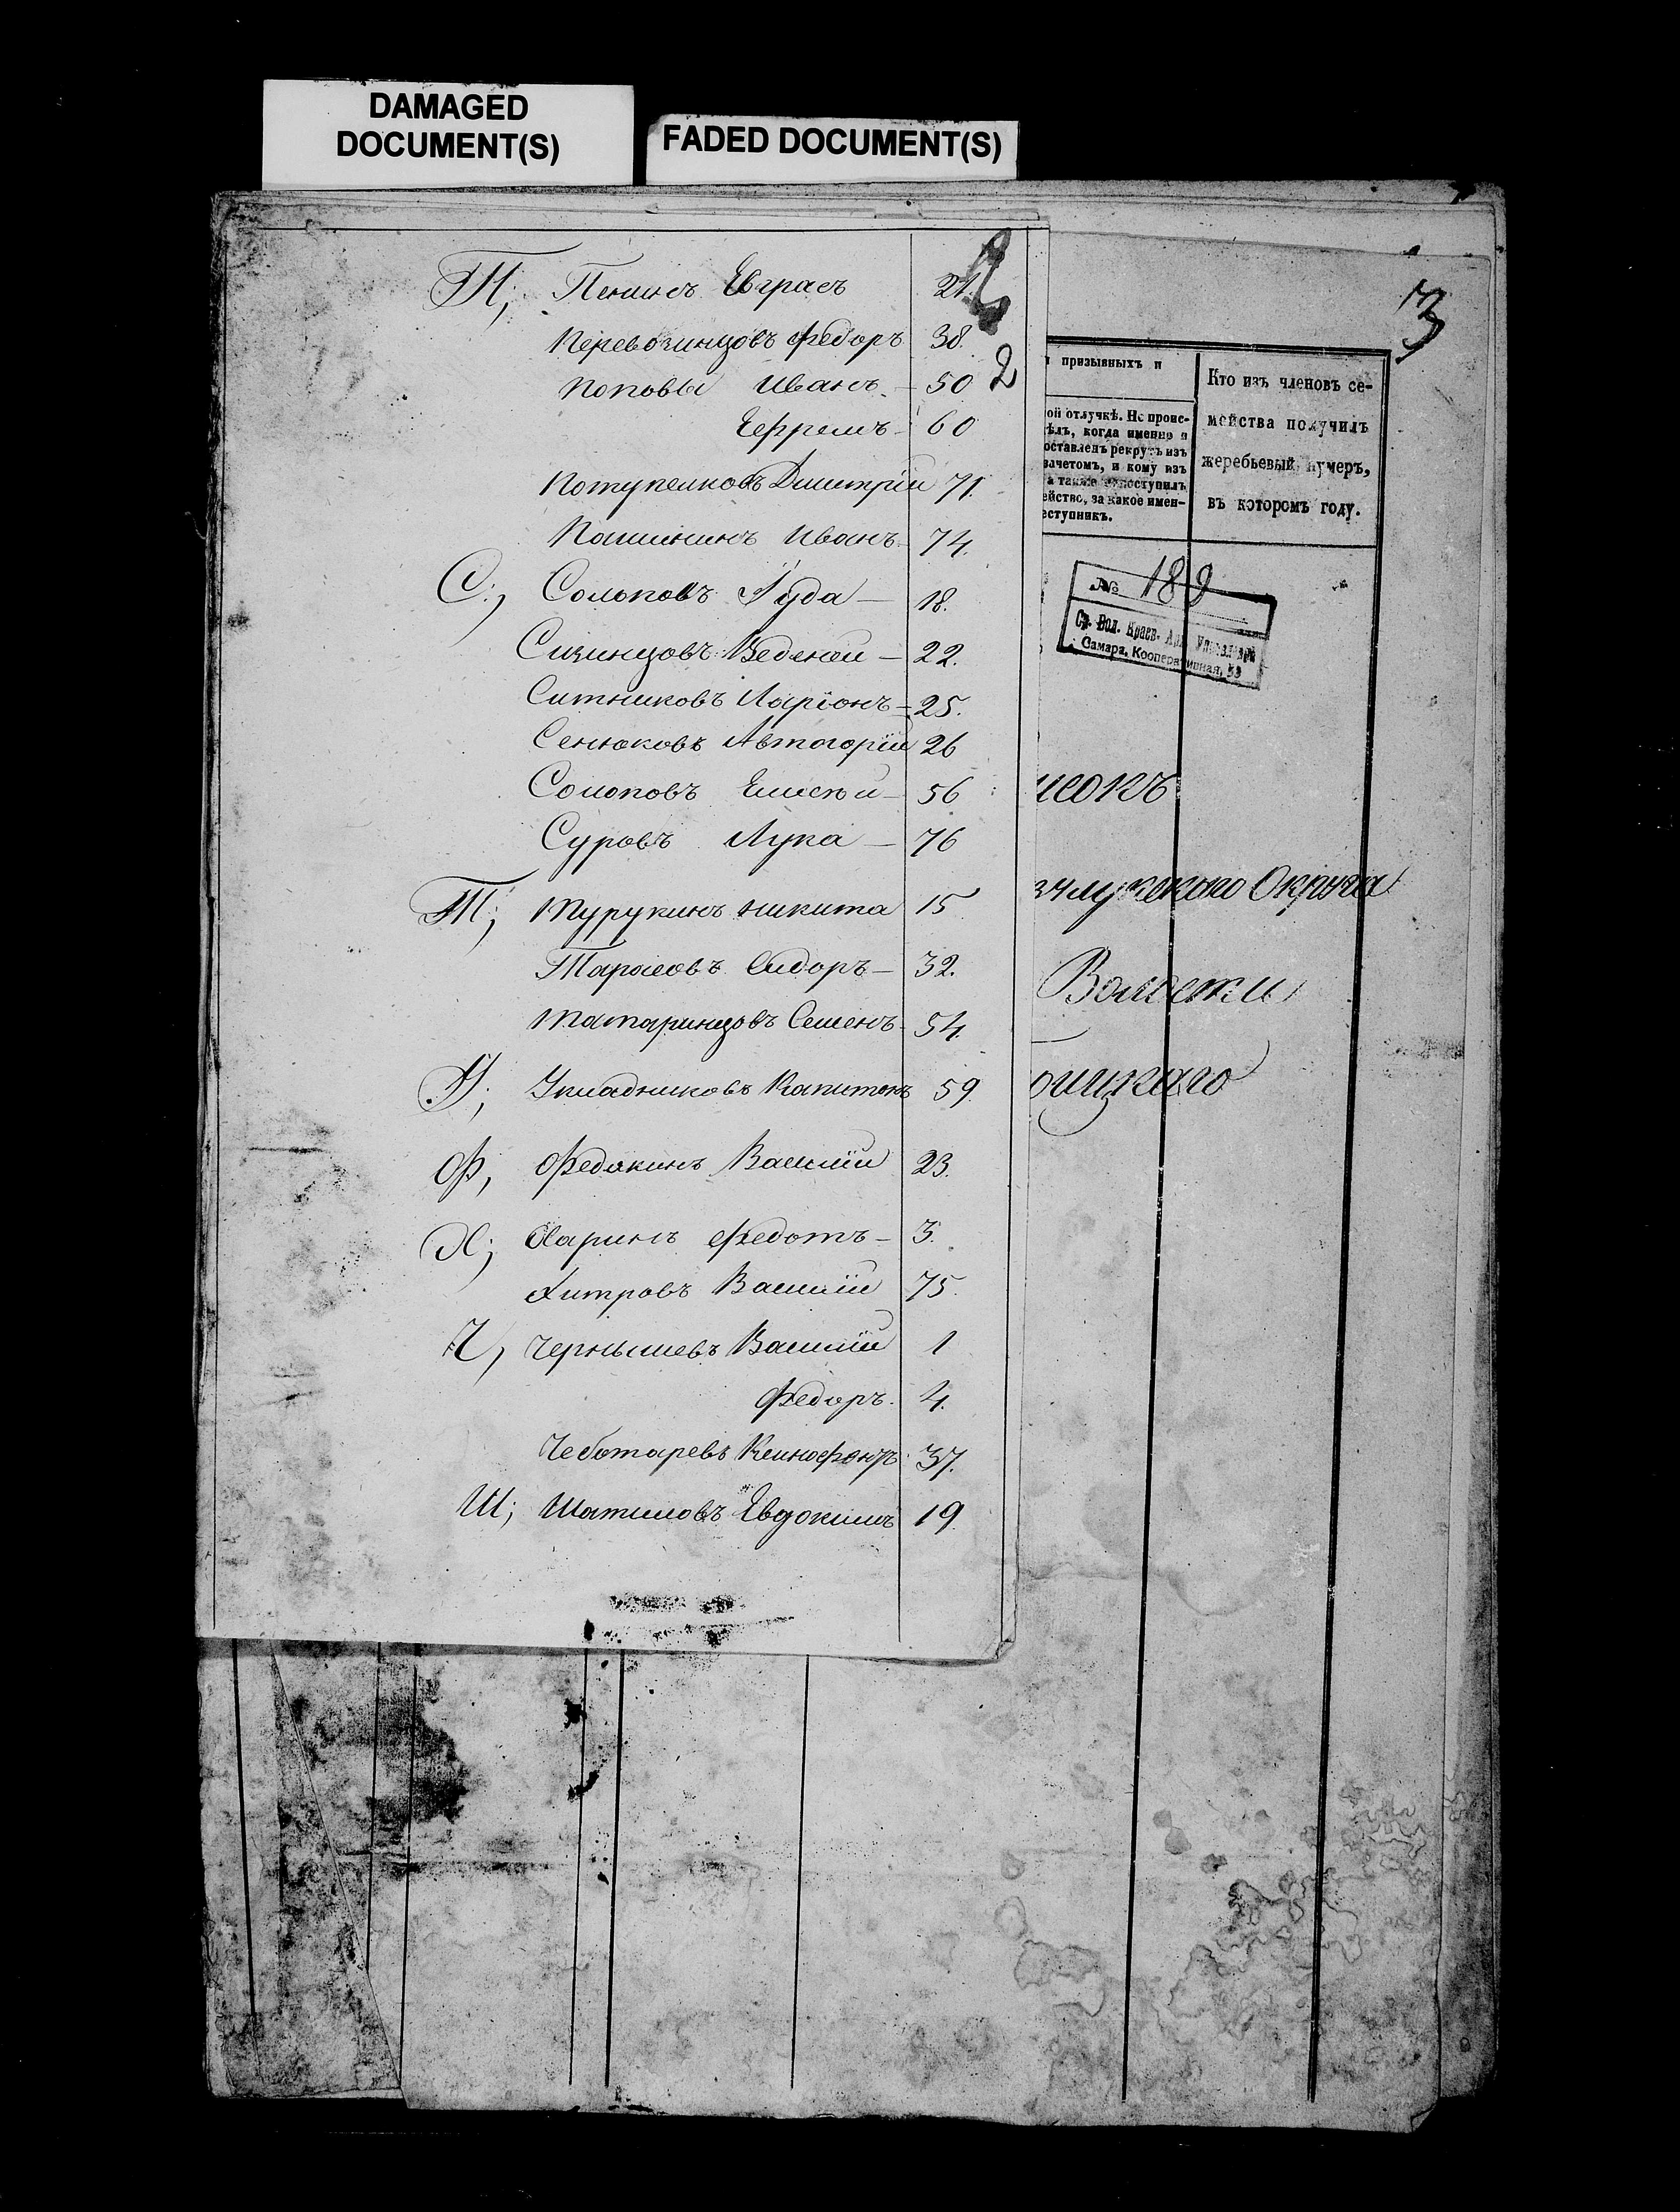 DAMAGED
DOCUMENT(S)
FADED DOCUMENT(S)
2
П; Пенинъ Евграфъ 21.
Перевозинцовъ Федоръ 38.
2
Поповы Иванъ – 50
Ефремъ – 60
Потупчиковъ Дмитрій 71.
Папшинъ Иванъ – 74.
С; Солоповъ Іуда – 18.
Сизинцовъ Веденей – 22.
Ситниковъ Ларіонъ – 25.
Сенюковъ 26
Солоповъ Елисей – 56
Суровъ Лука – 76
Т; Турукинъ Никита 15
Тарасовъ Сидоръ – 32.
Татаринцовъ Семенъ 54.
У; Укладниковъ Капитонъ 59.
Ф, Федякинъ Василій 23.
Х; Харинъ Федотъ – 3.
Хитровъ Василій 75.
Ч, Чернышевъ Василій 1
Федоръ. 4.
Чеботаревъ Ксенофонтъ 37.
Ш; Шатиловъ Евдокимъ 19.
3
призывныхъ и
ой отлучкѣ. Не проис-
ѣлъ, когда именно и
оставленъ рекрутъ изъ
зачетомъ, и кому изъ
а также поступилъ
ейство, за какое имен-
еступникъ.
Кто изъ членовъ се-
мейства получилъ
жеребьевый нумеръ,
въ которомъ году.
№ 189
Ср. Вол. Краев. Арх. Управлен
Самара, Кооперативная, 53
исокъ
зулукскаго Округа
Волости
оицкаго